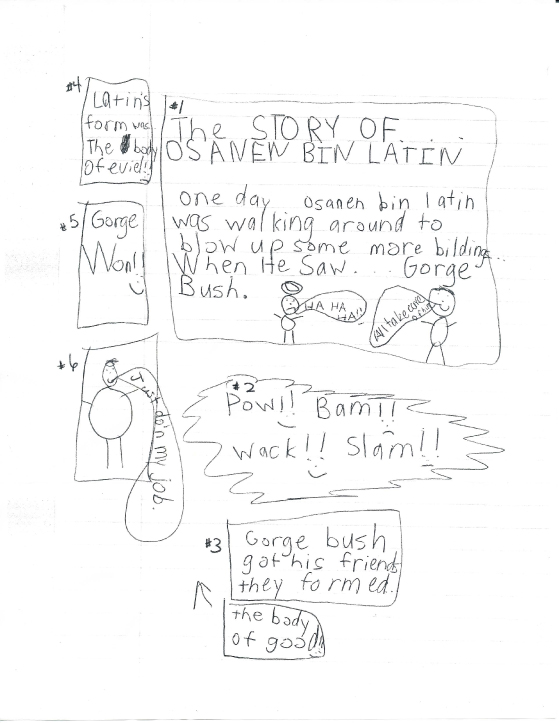 #1
The STORY OF...
OSANEN BIN LATIN
one day osanen bin latin
was walking around to
blow up some more bilding...
When He Saw... Gorge
Bush.
HA HA
HA!!
All take care
of him
#2
Pow!! Bam!!
wack!! Slam!!
#3
Gorge bush
got his friends
they formed.
the body
of good!!
#4
Latin's
form was
The body
Of eviel!!
#5
Gorge
Won!!
#6
Just do'n my job.